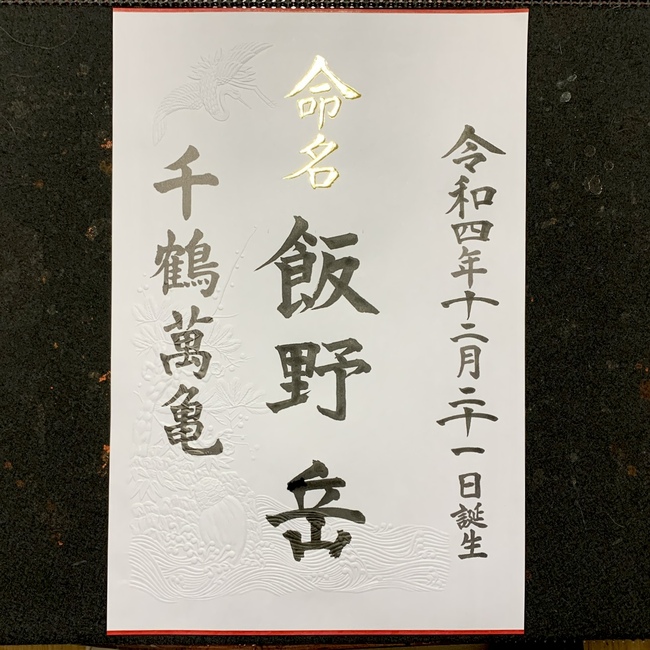 令和四年十二月二十一日誕生
命名
飯野岳
千鶴萬亀